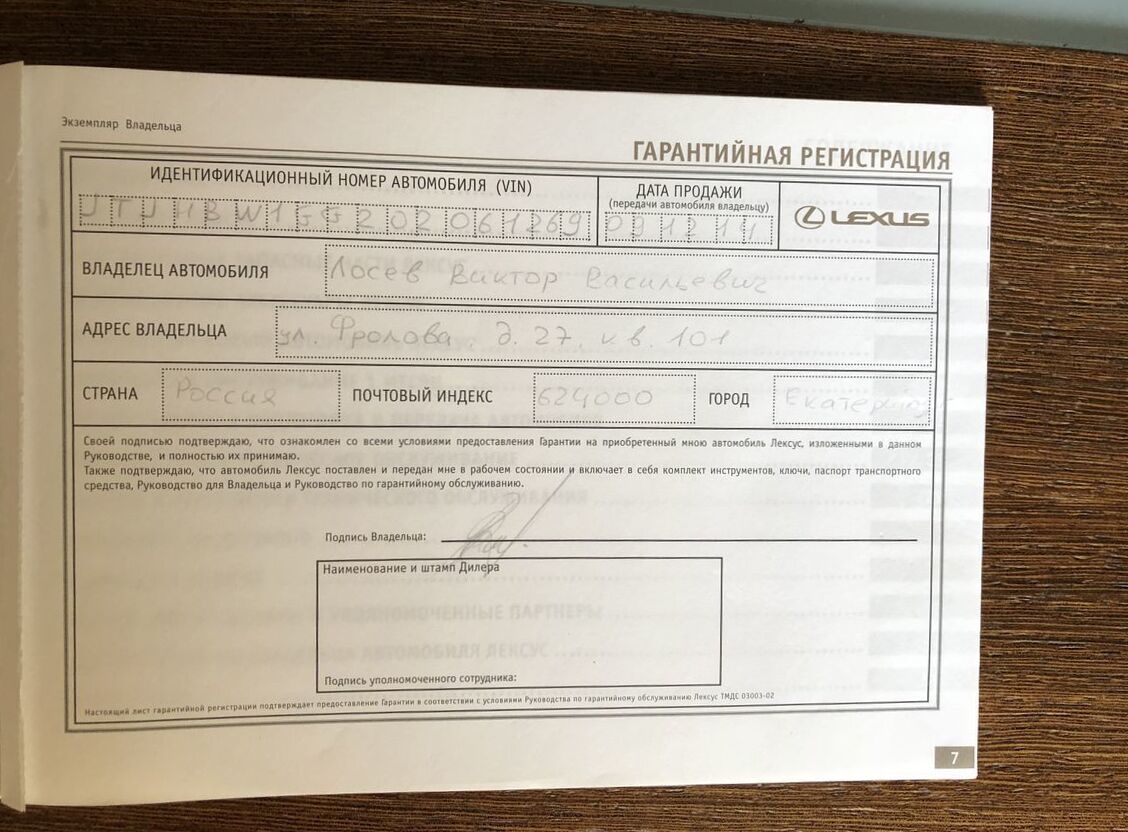 Экземпляр Владельца
ГАРАНТИЙНАЯ РЕГИСТРАЦИЯ
ИДЕНТИФИКАЦИОННЫЙ НОМЕР АВТОМОБИЛЯ (VIN)
JTJHBW1GG202061269
ДАТА ПРОДАЖИ
(передачи автомобиля владельцу)
091214
LEXUS
ВЛАДЕЛЕЦ АВТОМОБИЛЯ Лосев Виктор Васильевич
АДРЕС ВЛАДЕЛЬЦА ул. Фролова. д. 27. кв. 101
СТРАНА Россия ПОЧТОВЫЙ ИНДЕКС 624000 ГОРОД
Своей подписью подтверждаю, что ознакомлен со всеми условиями предоставления Гарантии на приобретенный мною автомобиль Лексус, изложенными в данном
Руководстве, и полностью их принимаю.
Также подтверждаю, что автомобиль Лексус поставлен и передан мне в рабочем состоянии и включает в себя комплект инструментов, ключи, паспорт транспортного
средства, Руководство для Владельца и Руководство по гарантийному обслуживанию.
Подпись Владельца:
Наименование и штамп Дилера
Подпись уполномоченного сотрудника:
Настоящий лист гарантийной регистрации подтверждает предоставление Гарантии в соответствии с условиями Руководства по гарантийному обслуживанию Лексус ТМДС 03003-02
7